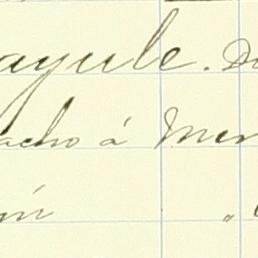 ayule. Di
acho á Mer
ín "